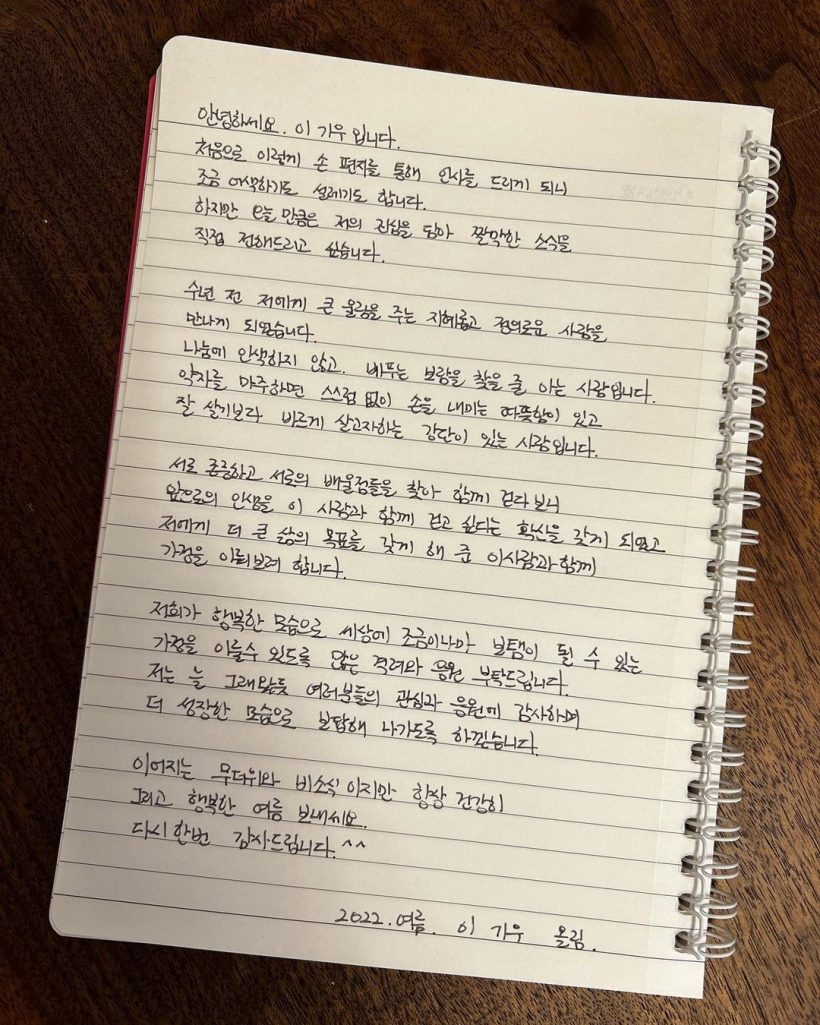 안녕하세요. 이 가우 입니다.
처음으로 이렇게 손 편지를 통해 인사를 드리게 되니
조금 어색하기도 설레기도 합니다.
하지만 오늘 만큼은 저의 진심을 담아 짤막한 소식을
직접 전해드리고 싶습니다.
수년 전 저에게 큰 울림을 주는 지혜롭고 정의로운 사람을
만나게 되었습니다.
나눔에 인색하지 않고. 베푸는 보람을 찾을 줄 아는 사람입니다.
약자를 마주하면 스스럼 없이 손을 내미는 따뜻함이 있고
잘 살기보다 바르게 살고자하는 강단이 있는 사람입니다.
서로 존중하고 서로의 배울점들을 찾아 함께 걷다보니
앞으로의 인생을 이 사람과 함께 걷고 싶다는 확신을 갖게 되었고
저에게 더 큰 삶의 목표를 갖게 해 준 이사람과 함께
가정을 이뤄보려 합니다.
저희가 행복한 모습으로 세상에 조금이나마 보탬이 될 수 있는
가정을 이룰수 있도록 많은 격려와 응원 부탁드립니다.
저는 늘 그래왔듯 여러분들의 관심과 응원에 감사하며
더 성장한 모습으로 보답해 나가도록 하겠습니다.
이어지는 무더위와 비소식 이지만 항상 건강히
그리고 행복한 여름 보내세요.
다시한번 감사드립니다.^^
2022.여름. 이 가우 올림.